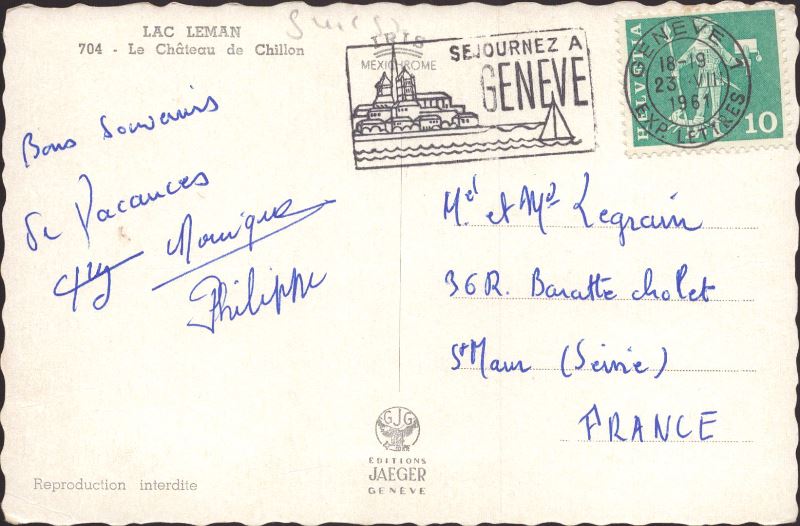 LAC LEMAN
704 - Le Château de Chillon
Suisse
IRIS
MEXICHROME
SEJOURNEZ A
GENEVE
HELVETIA
10
GENEVE 1
18-19
23. VII
196
EXP. LETTRES
Bons Souvenirs
de Vacances
Monique
Philippe
Mel et Me Legrain
36 R. Baratte cholet
St Maur (Seine)
FRANCE
GJG
EDITIONS
JAEGER
GENÈVE
Reproduction interdite